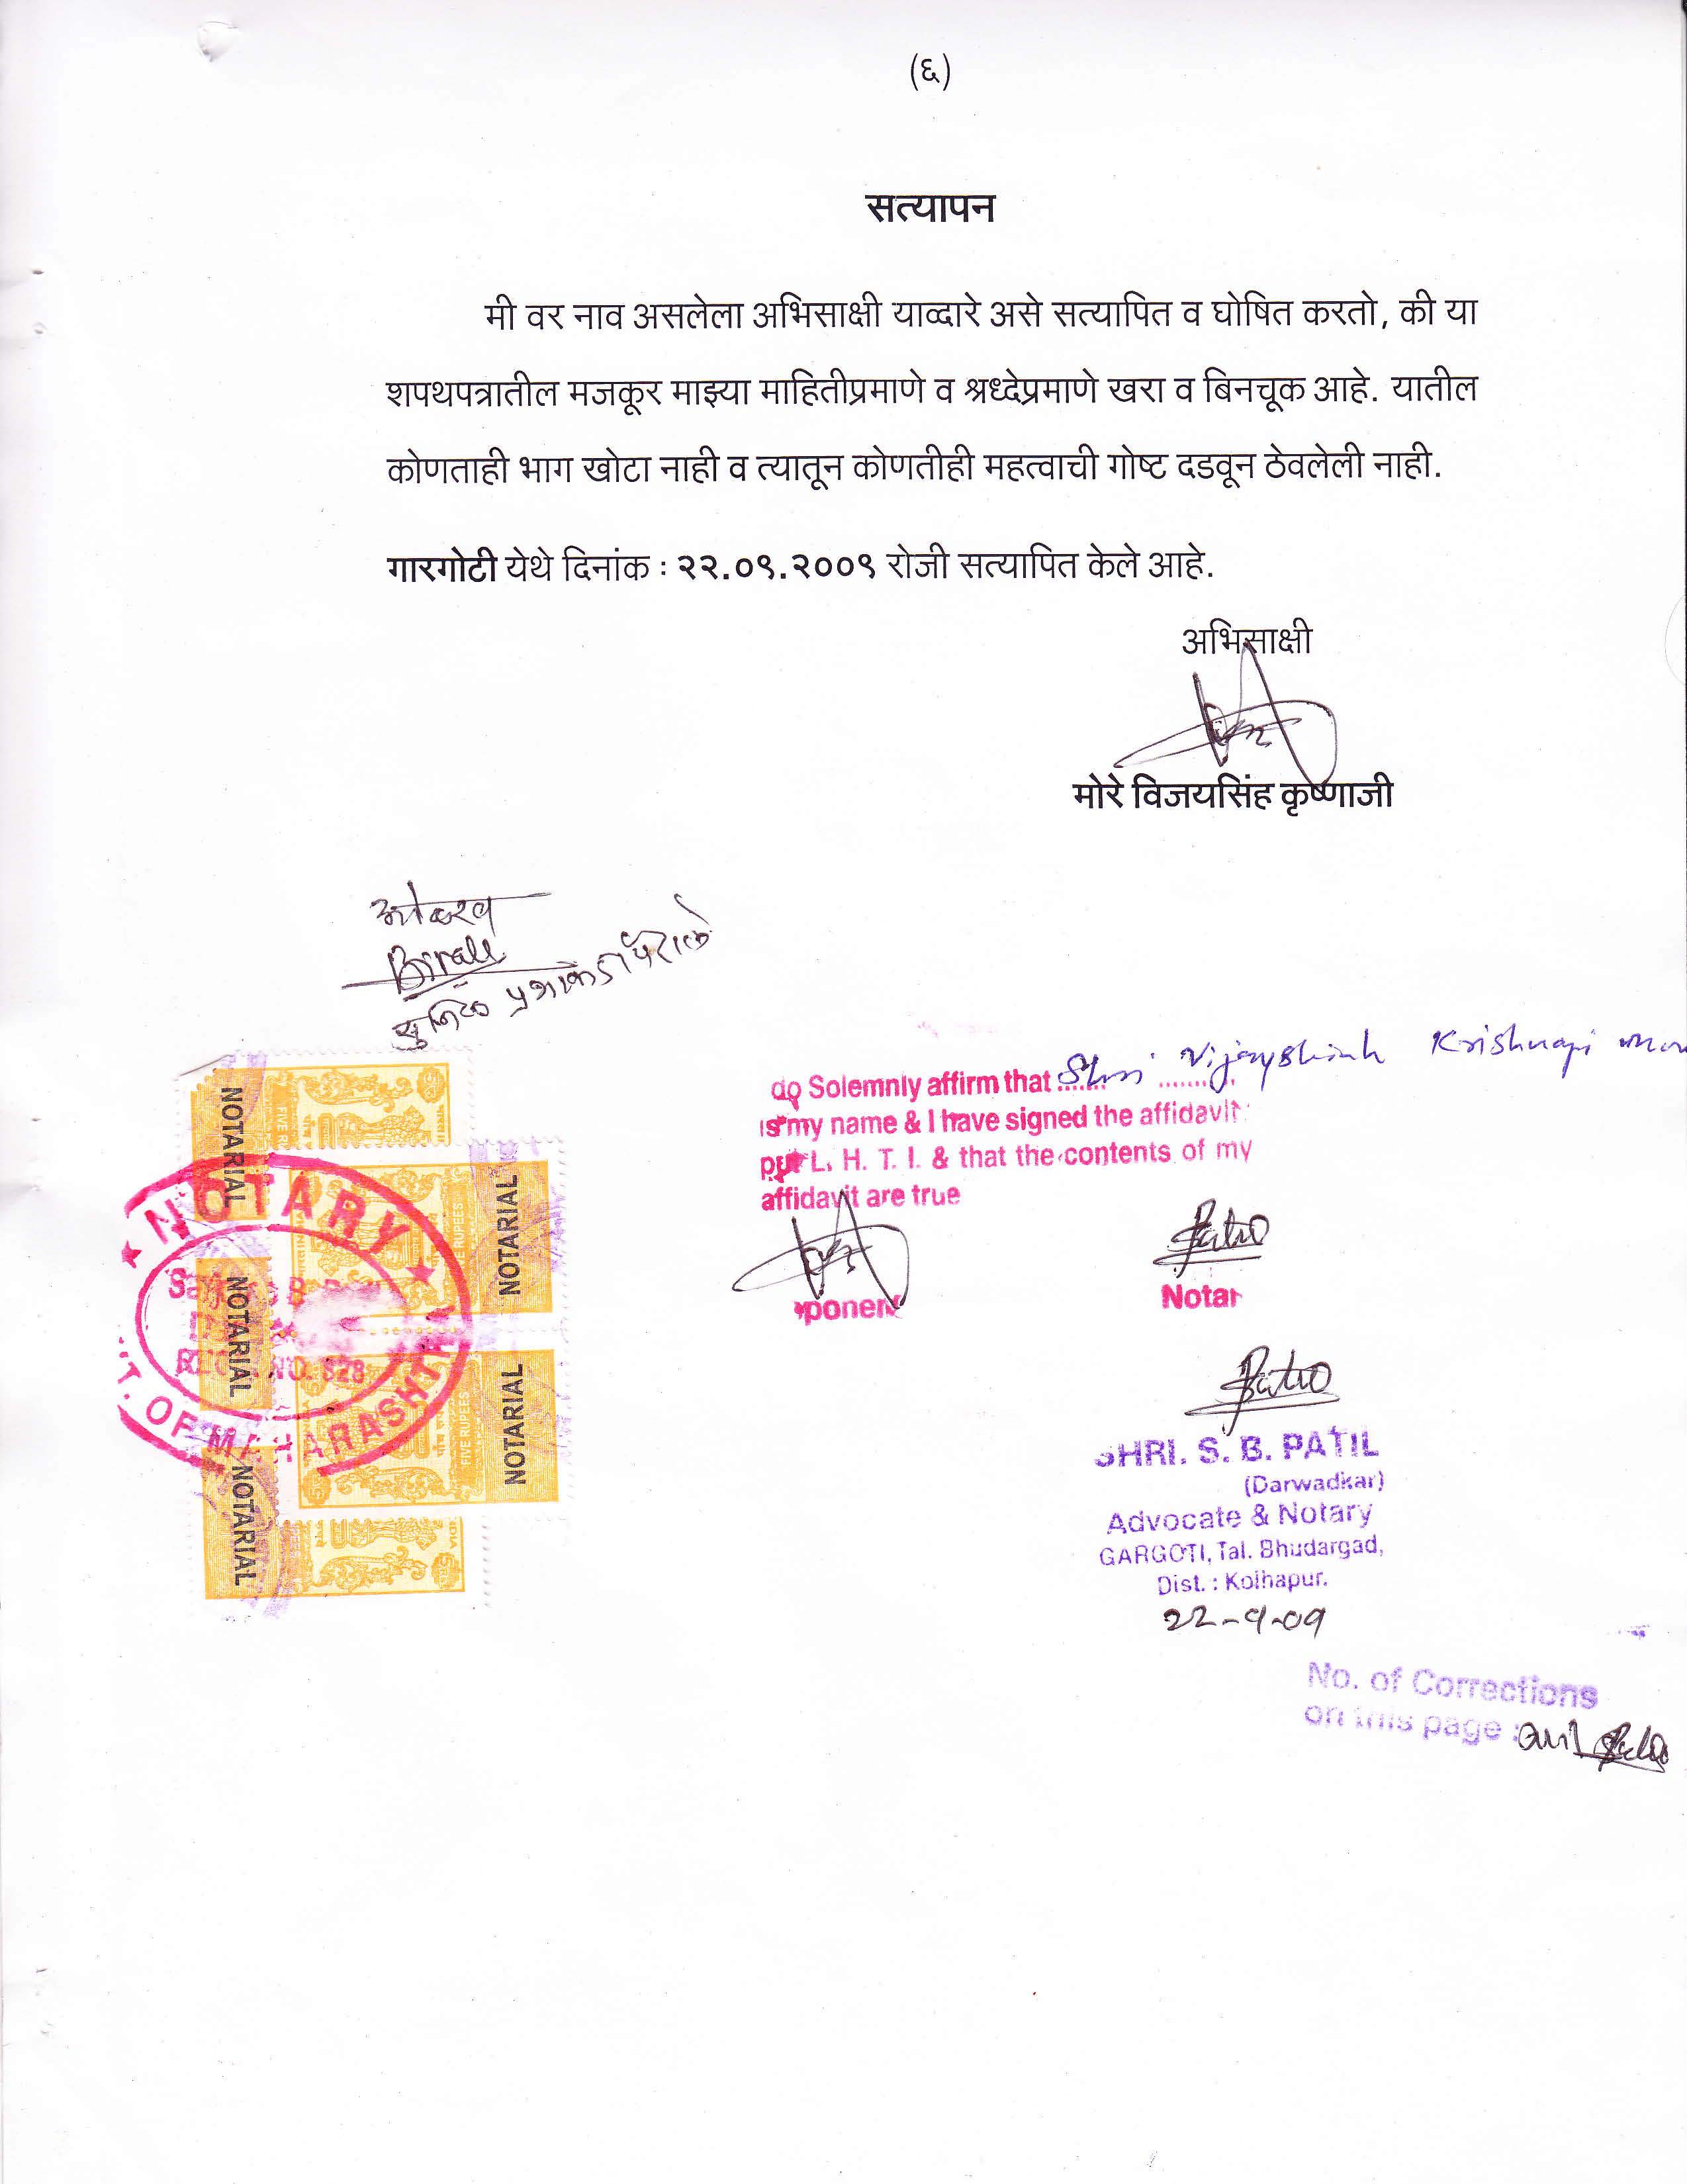 (६)
सत्यापन
मी वर नाव असलेला अभिसाक्षी याव्दारे असे सत्यापित व घोषित करतो, की या
शपथपत्रातील मजकूर माझ्या माहितीप्रमाणे व श्रध्देप्रमाणे खरा व बिनचूक आहे. यातील
कोणताही भाग खोटा नाही व त्यातून कोणतीही महत्वाची गोष्ट दडवून ठेवलेली नाही.
गारगोटी येथे दिनांक : २२.०९.२००९ रोजी सत्यापित केले आहे.
अभिसाक्षी
मोरे विजयसिंह कृष्णाजी
do Solemnly affirm that Shri Vijayshinh Krishnaji
is my name & I have signed the affidavit
put L. H. T. I. & that the contents of my
affidavit are true
ponent
Notar
SHRI. S. B. PATIL
(Darwadkar)
Advocate & Notary
GARGOTI, Tal. Bhudargad,
Dist. : Kolhapur.
22-9-09
No. of Corrections
on this page :
NOTARIAL
NOTARIAL
NOTARIAL
NOTARIAL
NOTARIAL
FIVE RUPEES
FIVE RUPEES
NOTARY
NO. 828
T. OF MAHARASHT